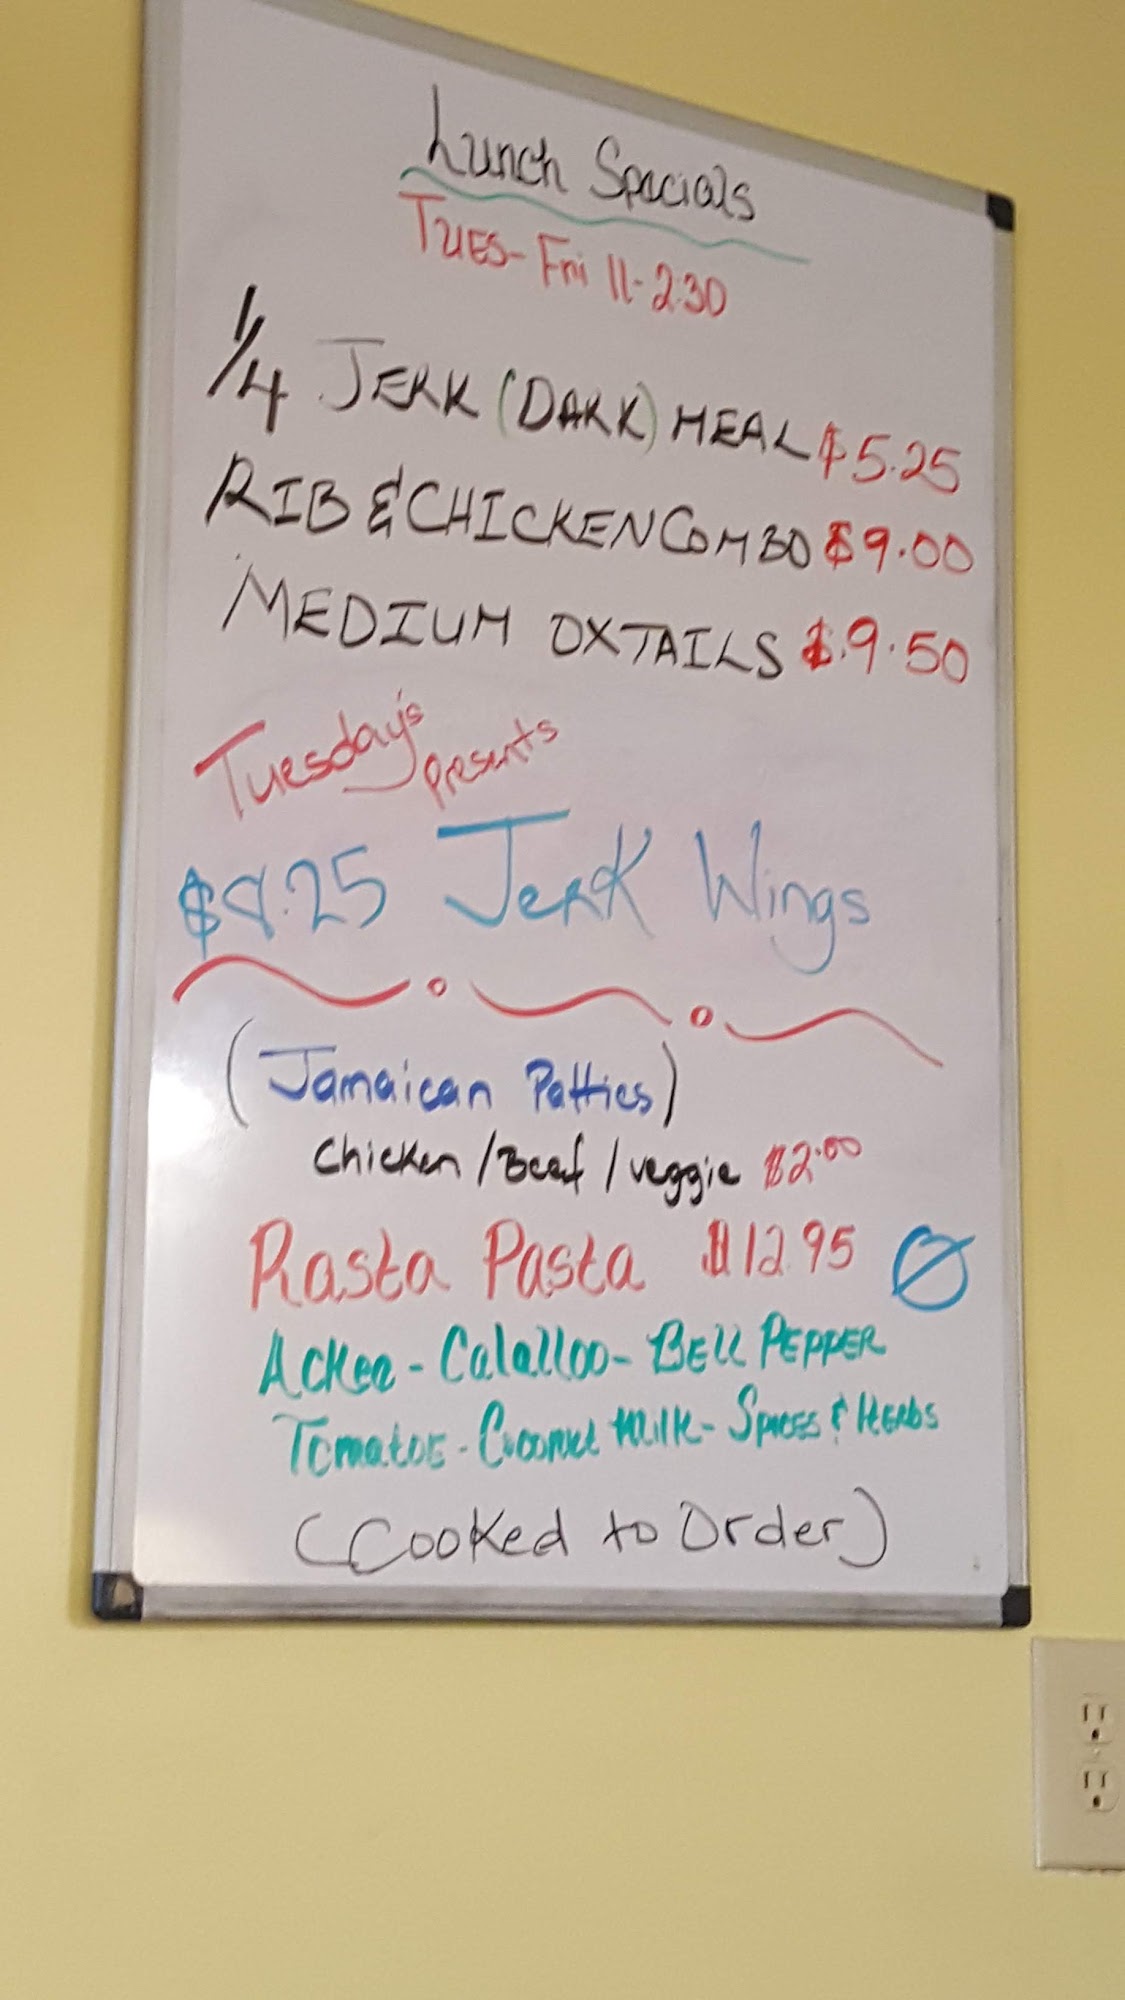 Lunch Specials
TUES-Fri 11-2:30
1/4 JERK (DARK) MEAL $5.25
RIB & CHICKEN COMBO $9.00
MEDIUM OXTAILS $9.50
Tuesday's presents
Jerk Wings
(Jamaican Patties)
Chicken/Beef/veggie $2.00
Rasta Pasta $12.95
Ackee-Calalloo-BELL PEPPER
Tomatoe-Coconut Milk-SPICES & HERBS
(Cooked to Order)